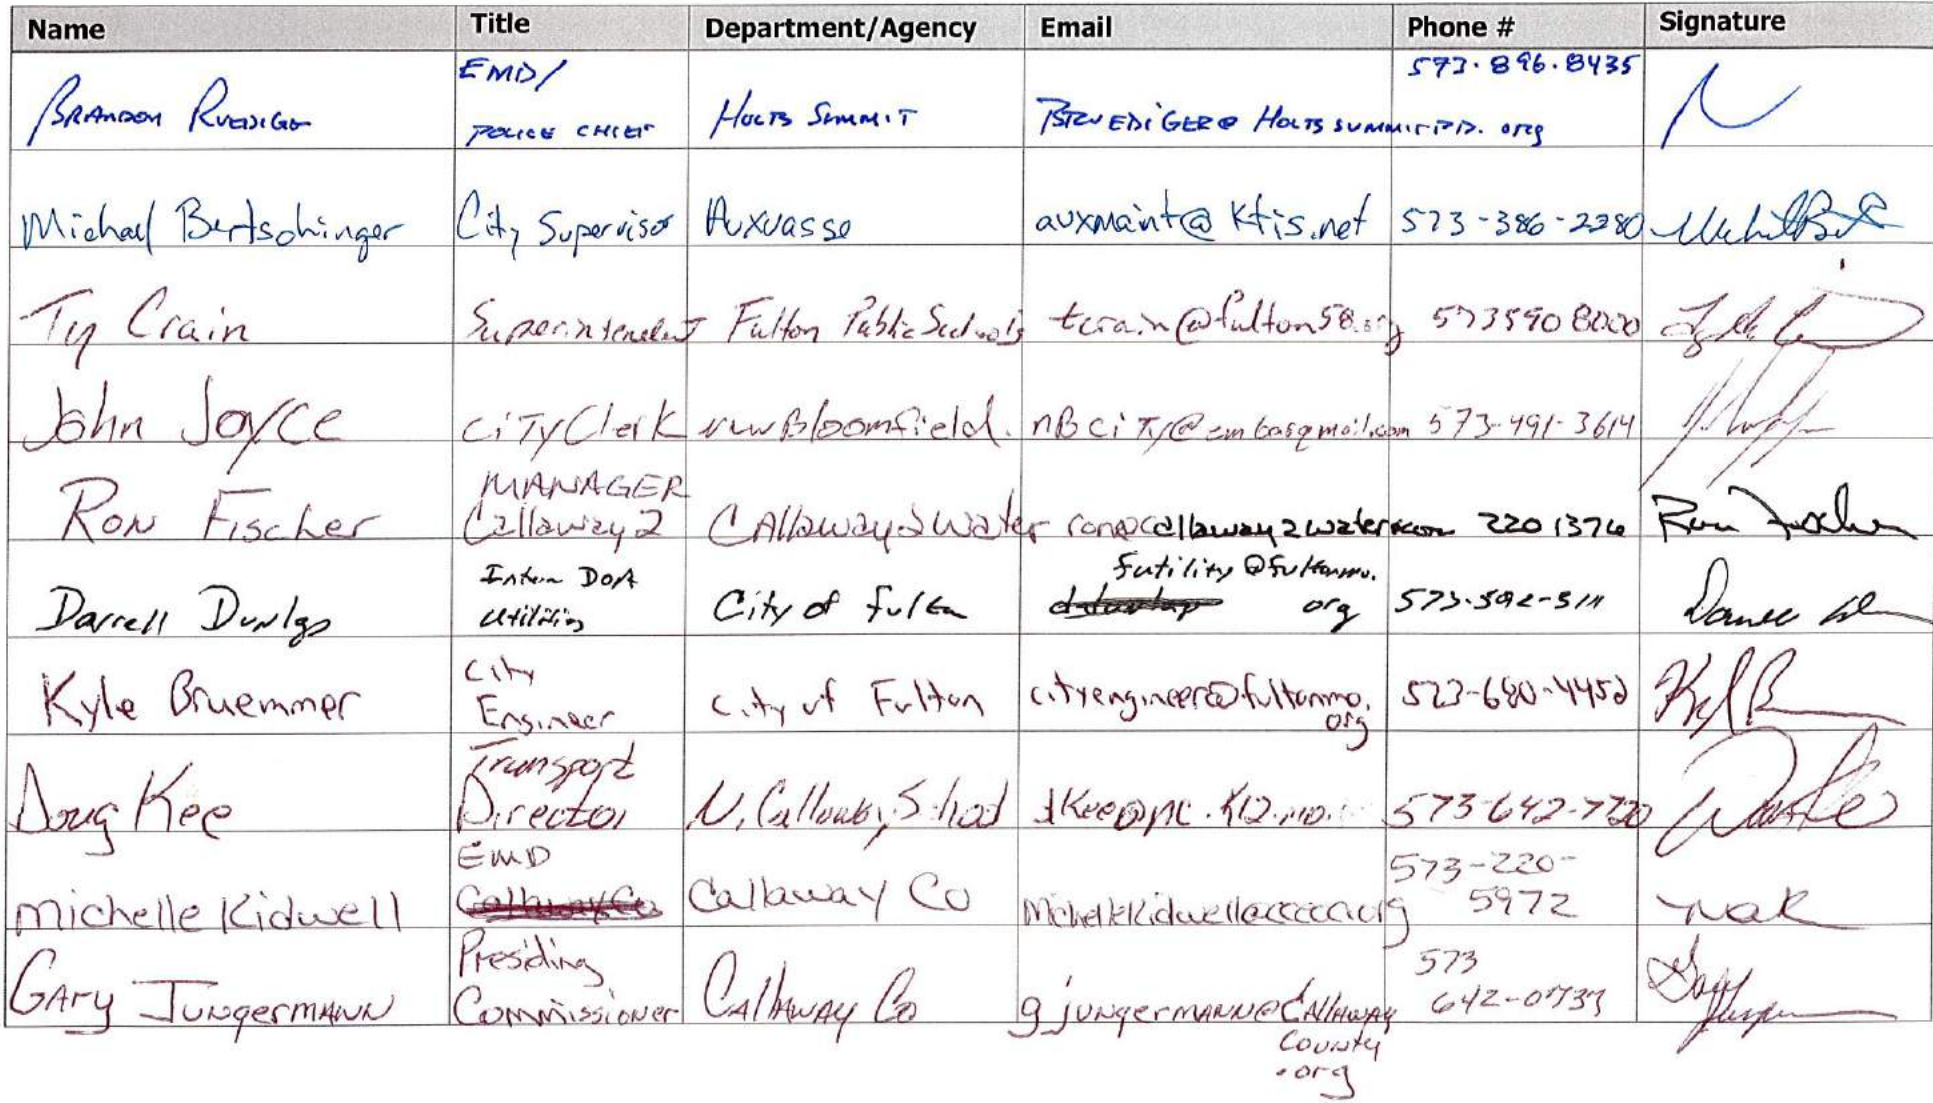 Name Title Department/Agency Email Phone # Signature
BRANDON RUEDIGER EMD/ POLICE CHIEF HOLTS SUMMIT BRUEDIGER@HOLTSSUMMITPD.org 573.896.8435
Michael Bertschinger City Supervisor Auxvasse auxmaint@ktis.net 573-386-2280
Ty Crain Superintendent Fulton Public Schools tcrain@fulton58.org 573 590 8000
John Joyce CiTy Clerk new Bloomfield. 573-491-3614
Ron Fischer MANAGER Callaway 2 CAllaway 2 Water 220 1376 Ron Fischer
Darrell Dunlap Interim Utilities City of Fulton futility@fultonmo.org
Kyle Bruemmer City Engineer City of Fulton cityengineer@fultonmo.org 573-680-4452
Doug Kee Transport Director N. Callaway School 573-642-7720
Michelle Kidwell EMD Callaway Co 573-220-5972 MAK
GAry JUNgerMANN Presiding Commissioner CAllAWAY Co gjungerMANN@CAllAWAYCounty.org 573